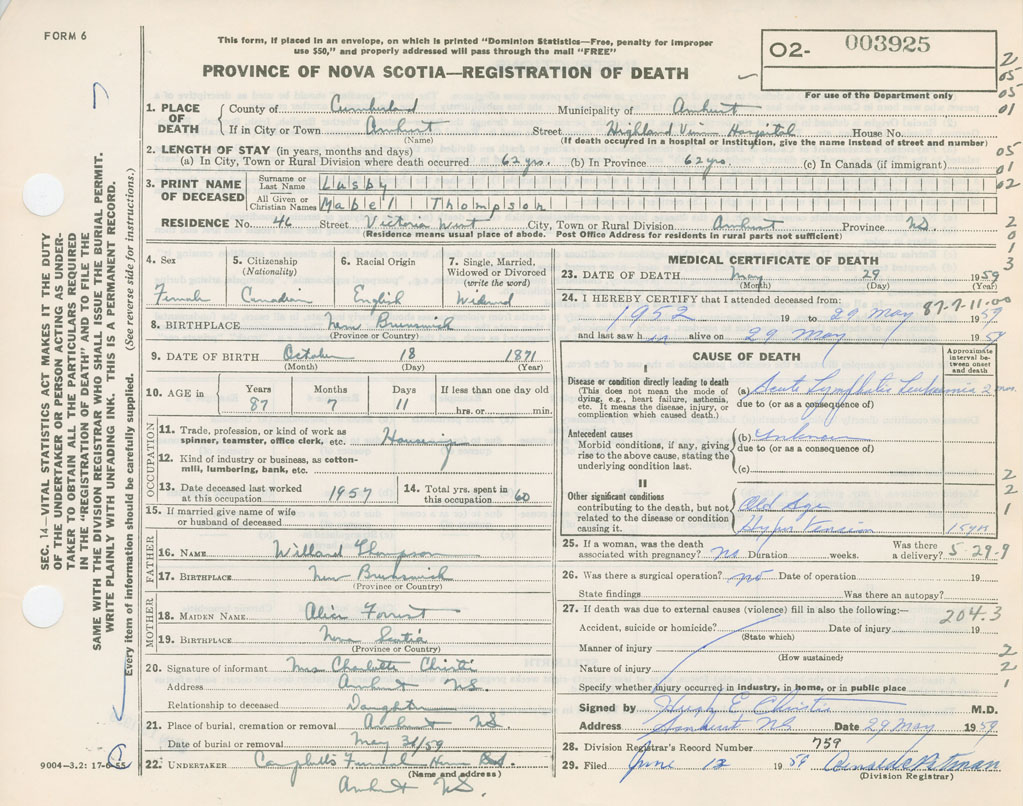 FORM 6
This form, if placed in an envelope, on which is printed "Dominion Statistics—Free, penalty for improper
use $50," and properly addressed will pass through the mail "FREE"
PROVINCE OF NOVA SCOTIA—REGISTRATION OF DEATH
O2- 003925
For use of the Department only
1. PLACE OF DEATH { County of Cumberland Municipality of Amherst
If in City or Town Amherst Street Highland View Hospital House No.
(Name) (If death occurred in a hospital or institution, give the name instead of street and number)
2. LENGTH OF STAY (in years, months and days)
(a) In City, Town or Rural Division where death occurred 62 yrs. (b) In Province 62 yrs. (c) In Canada (if immigrant)
3. PRINT NAME OF DECEASED
Surname or Last Name Lusby
All Given or Christian Names Mabel Thompson
RESIDENCE No. 46 Street Victoria West City, Town or Rural Division Amherst Province NS
(Residence means usual place of abode. Post Office Address for residents in rural parts not sufficient)
4. Sex Female
5. Citizenship (Nationality) Canadian
6. Racial Origin English
7. Single, Married, Widowed or Divorced (write the word) Widowed
8. BIRTHPLACE New Brunswick
(Province or Country)
9. DATE OF BIRTH October 18 1871
(Month) (Day) (Year)
10. AGE in Years 87 Months 7 Days 11 If less than one day old hrs. or min.
OCCUPATION
11. Trade, profession, or kind of work as spinner, teamster, office clerk, etc. Housewife
12. Kind of industry or business, as cotton-mill, lumbering, bank, etc.
13. Date deceased last worked at this occupation 1957
14. Total yrs. spent in this occupation 60
15. If married give name of wife or husband of deceased
FATHER
16. NAME Willard Thompson
17. BIRTHPLACE New Brunswick
(Province or Country)
MOTHER
18. MAIDEN NAME Alice Forrest
19. BIRTHPLACE Nova Scotia
(Province or Country)
20. Signature of informant Mrs Charlotte Christie
Address Amherst NS.
Relationship to deceased Daughter
21. Place of burial, cremation or removal Amherst NS.
Date of burial or removal May 31/59
22. UNDERTAKER Campbells Funeral Home
(Name and address)
Amherst NS.
MEDICAL CERTIFICATE OF DEATH
23. DATE OF DEATH May 29 1959
(Month) (Day) (Year)
24. I HEREBY CERTIFY that I attended deceased from: 87-7-11-00
1952 19 to 29 May 1959
and last saw h alive on 29 May 1959
CAUSE OF DEATH
Approximate interval between onset and death
I
Disease or condition directly leading to death
(This does not mean the mode of dying, e.g., heart failure, asthenia, etc. It means the disease, injury, or complication which caused death.)
(a) Acute Lymphatic Leukaemia 2 mos.
due to (or as a consequence of)
Antecedent causes
Morbid conditions, if any, giving rise to the above cause, stating the underlying condition last.
(b) Unknown
due to (or as a consequence of)
(c)
II
Other significant conditions contributing to the death, but not related to the disease or condition causing it.
Old Age
Hyper Tension 15 yrs
25. If a woman, was the death associated with pregnancy? no Duration weeks. Was there a delivery? 5-29-9
26. Was there a surgical operation? no Date of operation 19
State findings Was there an autopsy?
27. If death was due to external causes (violence) fill in also the following:— 204.3
Accident, suicide or homicide? Date of injury 19
(State which)
Manner of injury
(How sustained)
Nature of injury
Specify whether injury occurred in industry, in home, or in public place
Signed by Hugh E Christie M.D.
Address Amherst NS Date 29 May 1959
28. Division Registrar's Record Number 759
29. Filed June 12 1959
(Division Registrar)
SEC. 14—VITAL STATISTICS ACT MAKES IT THE DUTY
OF THE UNDERTAKER OR PERSON ACTING AS UNDER-
TAKER TO OBTAIN ALL THE PARTICULARS REQUIRED
IN THE "REGISTRATION OF DEATH" AND TO FILE THE
SAME WITH THE DIVISION REGISTRAR WHO SHALL ISSUE THE BURIAL PERMIT.
WRITE PLAINLY WITH UNFADING INK. THIS IS A PERMANENT RECORD.
Every item of information should be carefully supplied. (See reverse side for instructions.)
2
05
05
01
05
01
02
2
0
1
3
2
2
1
2
2
1